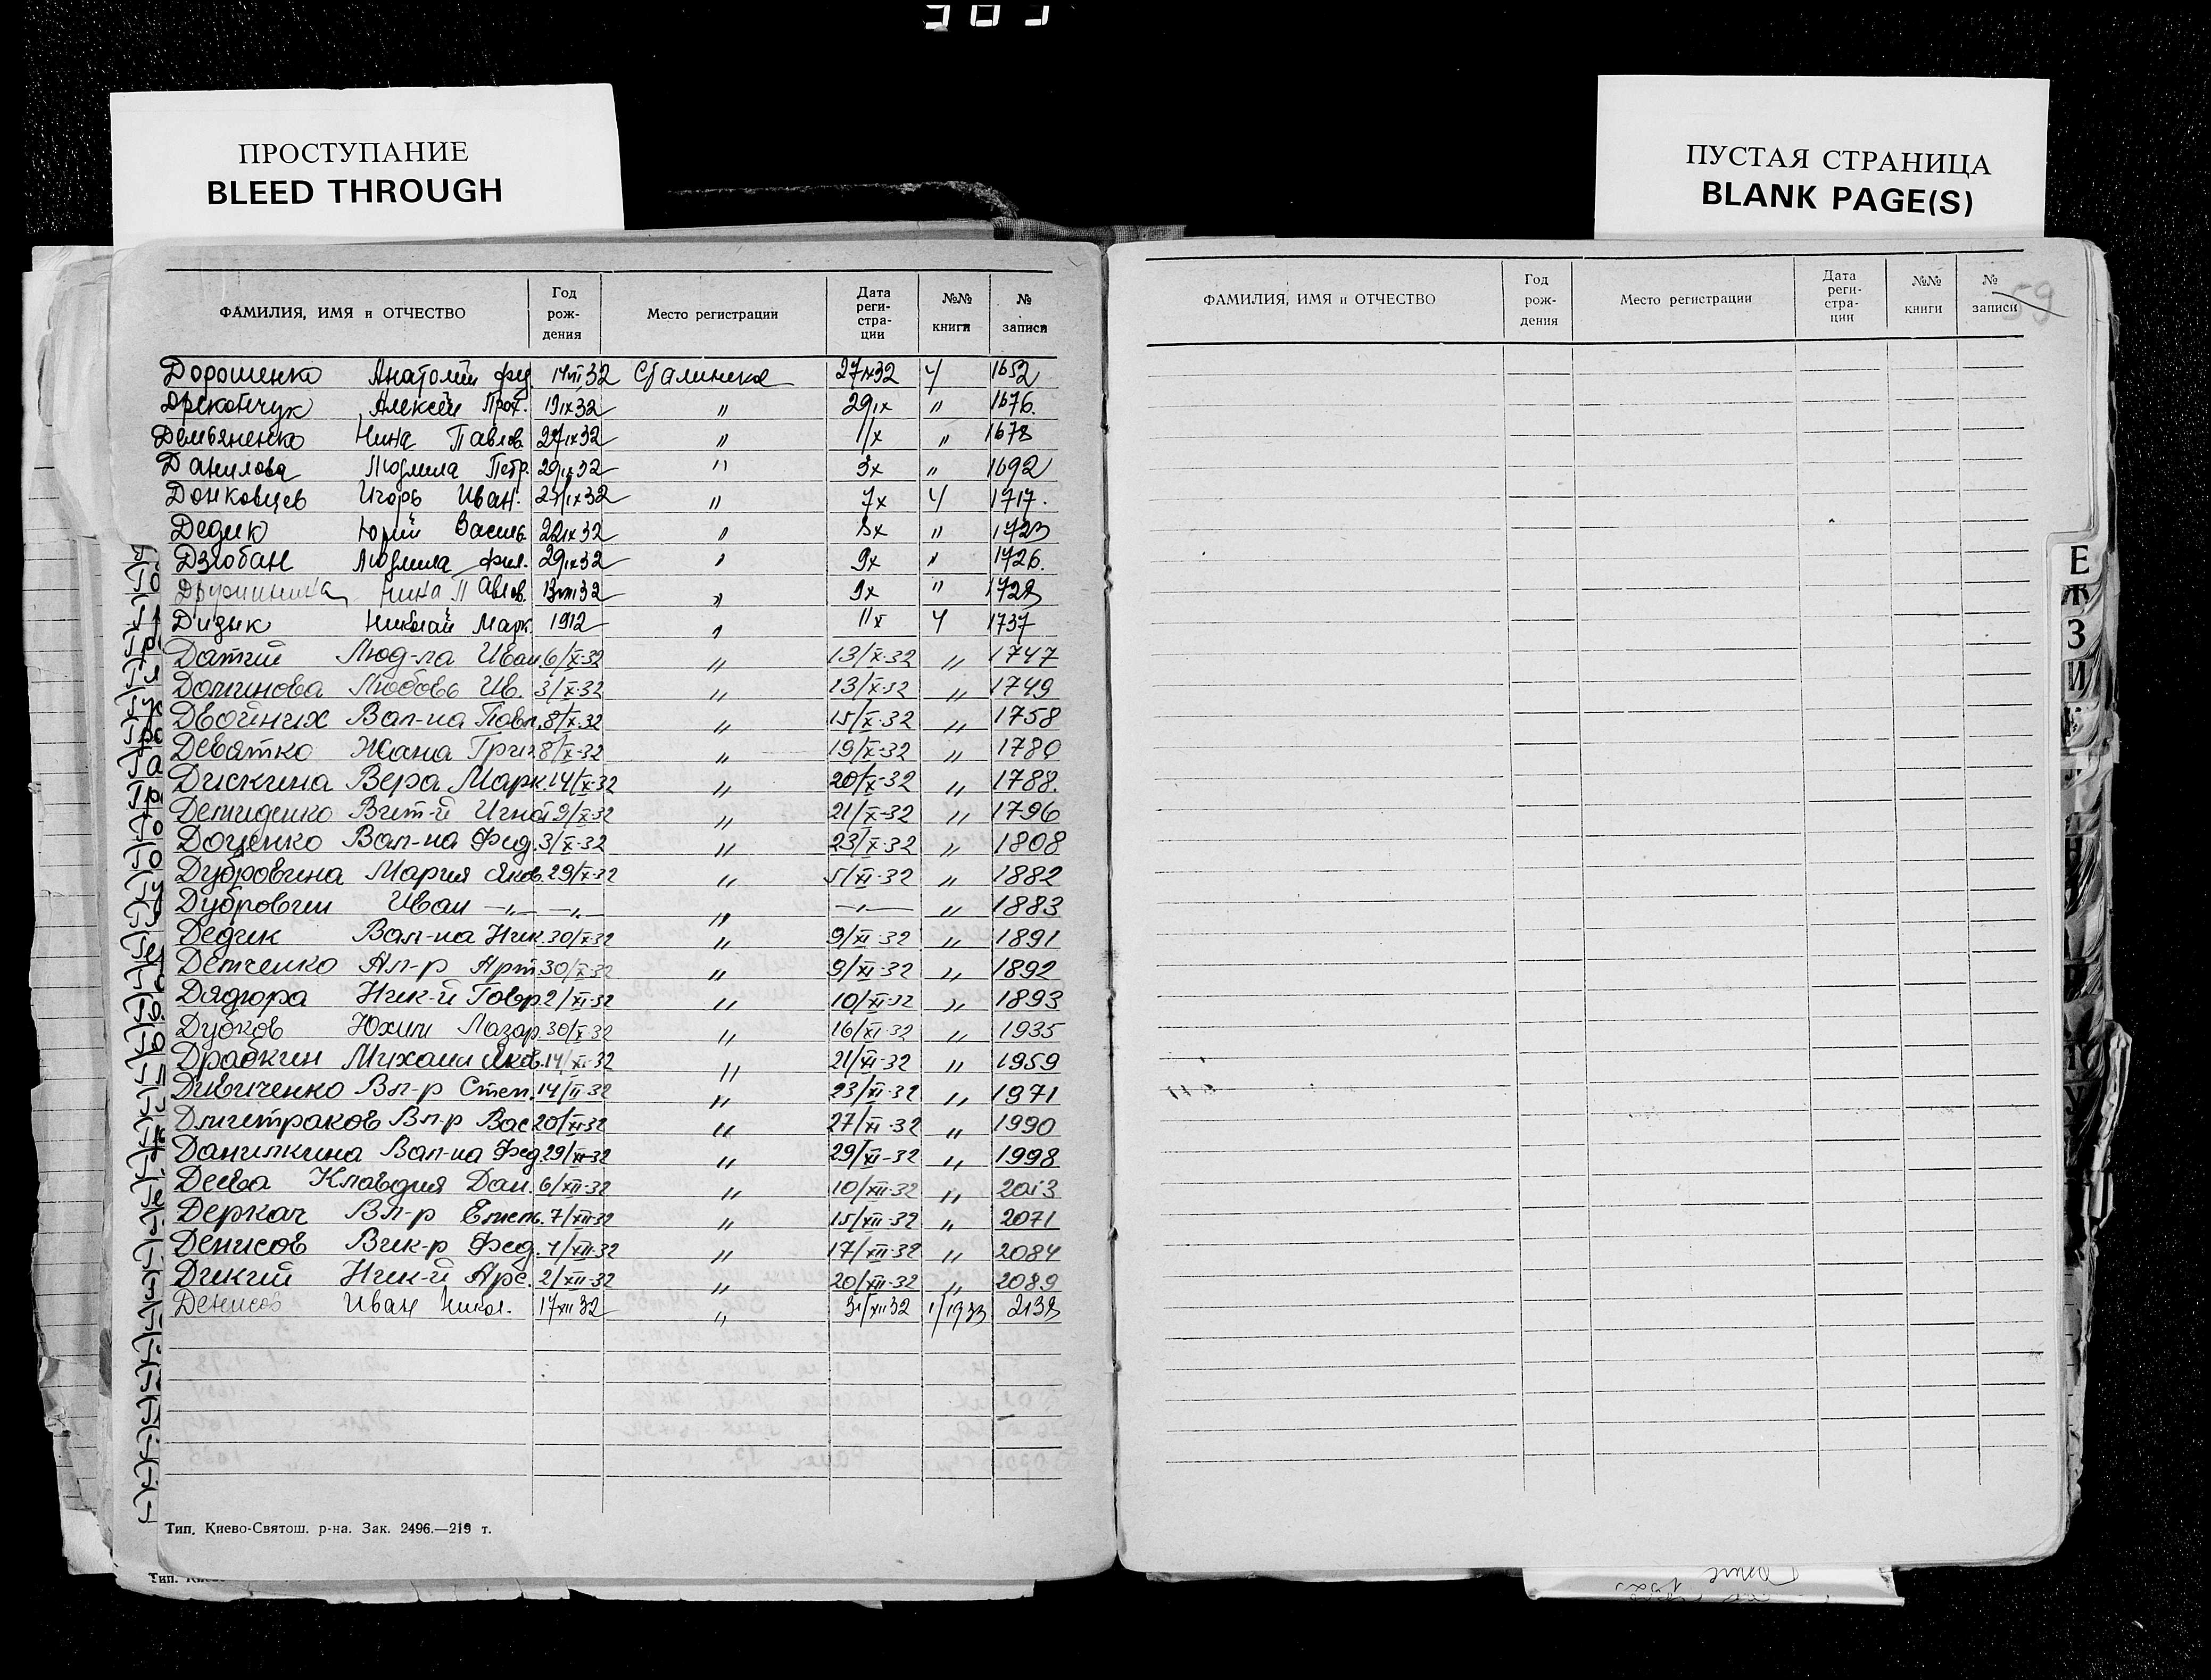 ПРОСТУПАНИЕ
BLEED THROUGH
ПУСТАЯ СТРАНИЦА
BLANK PAGE(S)
ФАМИЛИЯ, ИМЯ и ОТЧЕСТВО Год рож- дения Место регистрации Дата реги- стра- ции №№ книги № записи
Дорошенко Анатолий Фед. 32 Сталинка 27 IX 32 4 1652
Алексей Прох. 19 IX 32 " 29 IX " 1676.
Демьяненко Нина Павлов. 27 IX 32 " 1/X " 1678
Данилова Людмила Петр. 29 IX 32 " 3 X " 1692
Донковцев Игорь Иван. 27 IX 32 " 7 X 4 1717.
Дедик Юрий Василь. 22 IX 32 " X " 1723
Дзюбан Людмила Фил. 29 IX 32 " 9 X " 1726.
Нина Павлов. 13 VIII 32 " 9 X " 1728
Дидык Николай Марк. 1912 " 11 X 4 1737
Люд-ла Иван 6/X-32 " 13/X-32 " 1747
Доминова Любовь Ив. 3/X-32 " 13/X-32 " 1749
Двойних Вал-на Павл. 8/X-32 " 15/X-32 " 1758
Девятко Жана Григ. 8/X-32 " 19/X-32 " 1780
Дискина Вера Марк. 14/X-32 " 20/X-32 " 1788.
Демиденко Вит-й Игна 19/X-32 " 21/X-32 " 1796
Доценко Вал-на Фед. 3/X-32 " 23/X-32 " 1808
Дубровина Мария Яков. 29/X-32 " 5/XI-32 " 1882
Дубровин Иван —„— —„— " —„— " 1883
Дедик Вал-на Ник. 30/X-32 " 9/XI-32 " 1891
Демченко Ал-р Арт 30/X-32 " 9/XI-32 " 1892
Дядюра Ник-й Гавр 2/XI-32 " 10/XI-32 " 1893
Дубков Юхим Лазар 30/X-32 " 16/XI-32 " 1935
Драбкин Михаил Яков. 14/XI-32 " 21/XI-32 " 1959
Дивиченко Вл-р Степ. 14/II-32 " 23/XI-32 " 1971
Дмитраков Вл-р Вас 20/XI-32 " 27/XI-32 " 1990
Данилкина Вал-на Фед. 29/XI-32 " 29/XI-32 " 1998
Деева Клавдия Дан. 6/XII-32 " 10/XII-32 " 2013
Деркач Вл-р Емел. 7/XII-32 " 15/XII-32 " 2071
Денисов Вик-р Фед. /XII-32 " 17/XII-32 " 2084
Дикий Ник-й Арс. 2/XII-32 " 20/XII-32 " 2089
Денисов Иван Никол. 17 XII 32 " 31/XII 32 1/1933 2138
Тип. Киево-Святош. р-на. Зак. 2496.—219 т.
ФАМИЛИЯ, ИМЯ и ОТЧЕСТВО Год рож- дения Место регистрации Дата реги- стра- ции №№ книги № записи
59
Е
Ж
З
И